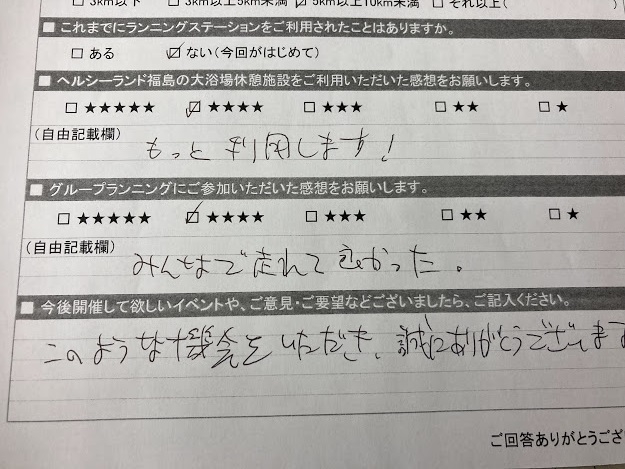 □ 3km以下 □ 3km以上5km未満 ☑ 5km以上10km未満 □ それ以上(
■ これまでにランニングステーションをご利用されたことはありますか。
□ ある ☑ ない(今回がはじめて)
■ ヘルシーランド福島の大浴場休憩施設をご利用いただいた感想をお願いします。
□ ★★★★★ ☑ ★★★★ □ ★★★ □ ★★ □ ★
(自由記載欄)
もっと利用します!
■ グループランニングにご参加いただいた感想をお願いします。
□ ★★★★★ ☑ ★★★★ □ ★★★ □ ★★ □ ★
(自由記載欄)
みんなで走れて良かった。
■ 今後開催して欲しいイベントや、ご意見・ご要望などございましたら、ご記入ください。
このような機会をいただき、誠にありがとうございます
ご回答ありがとうござ